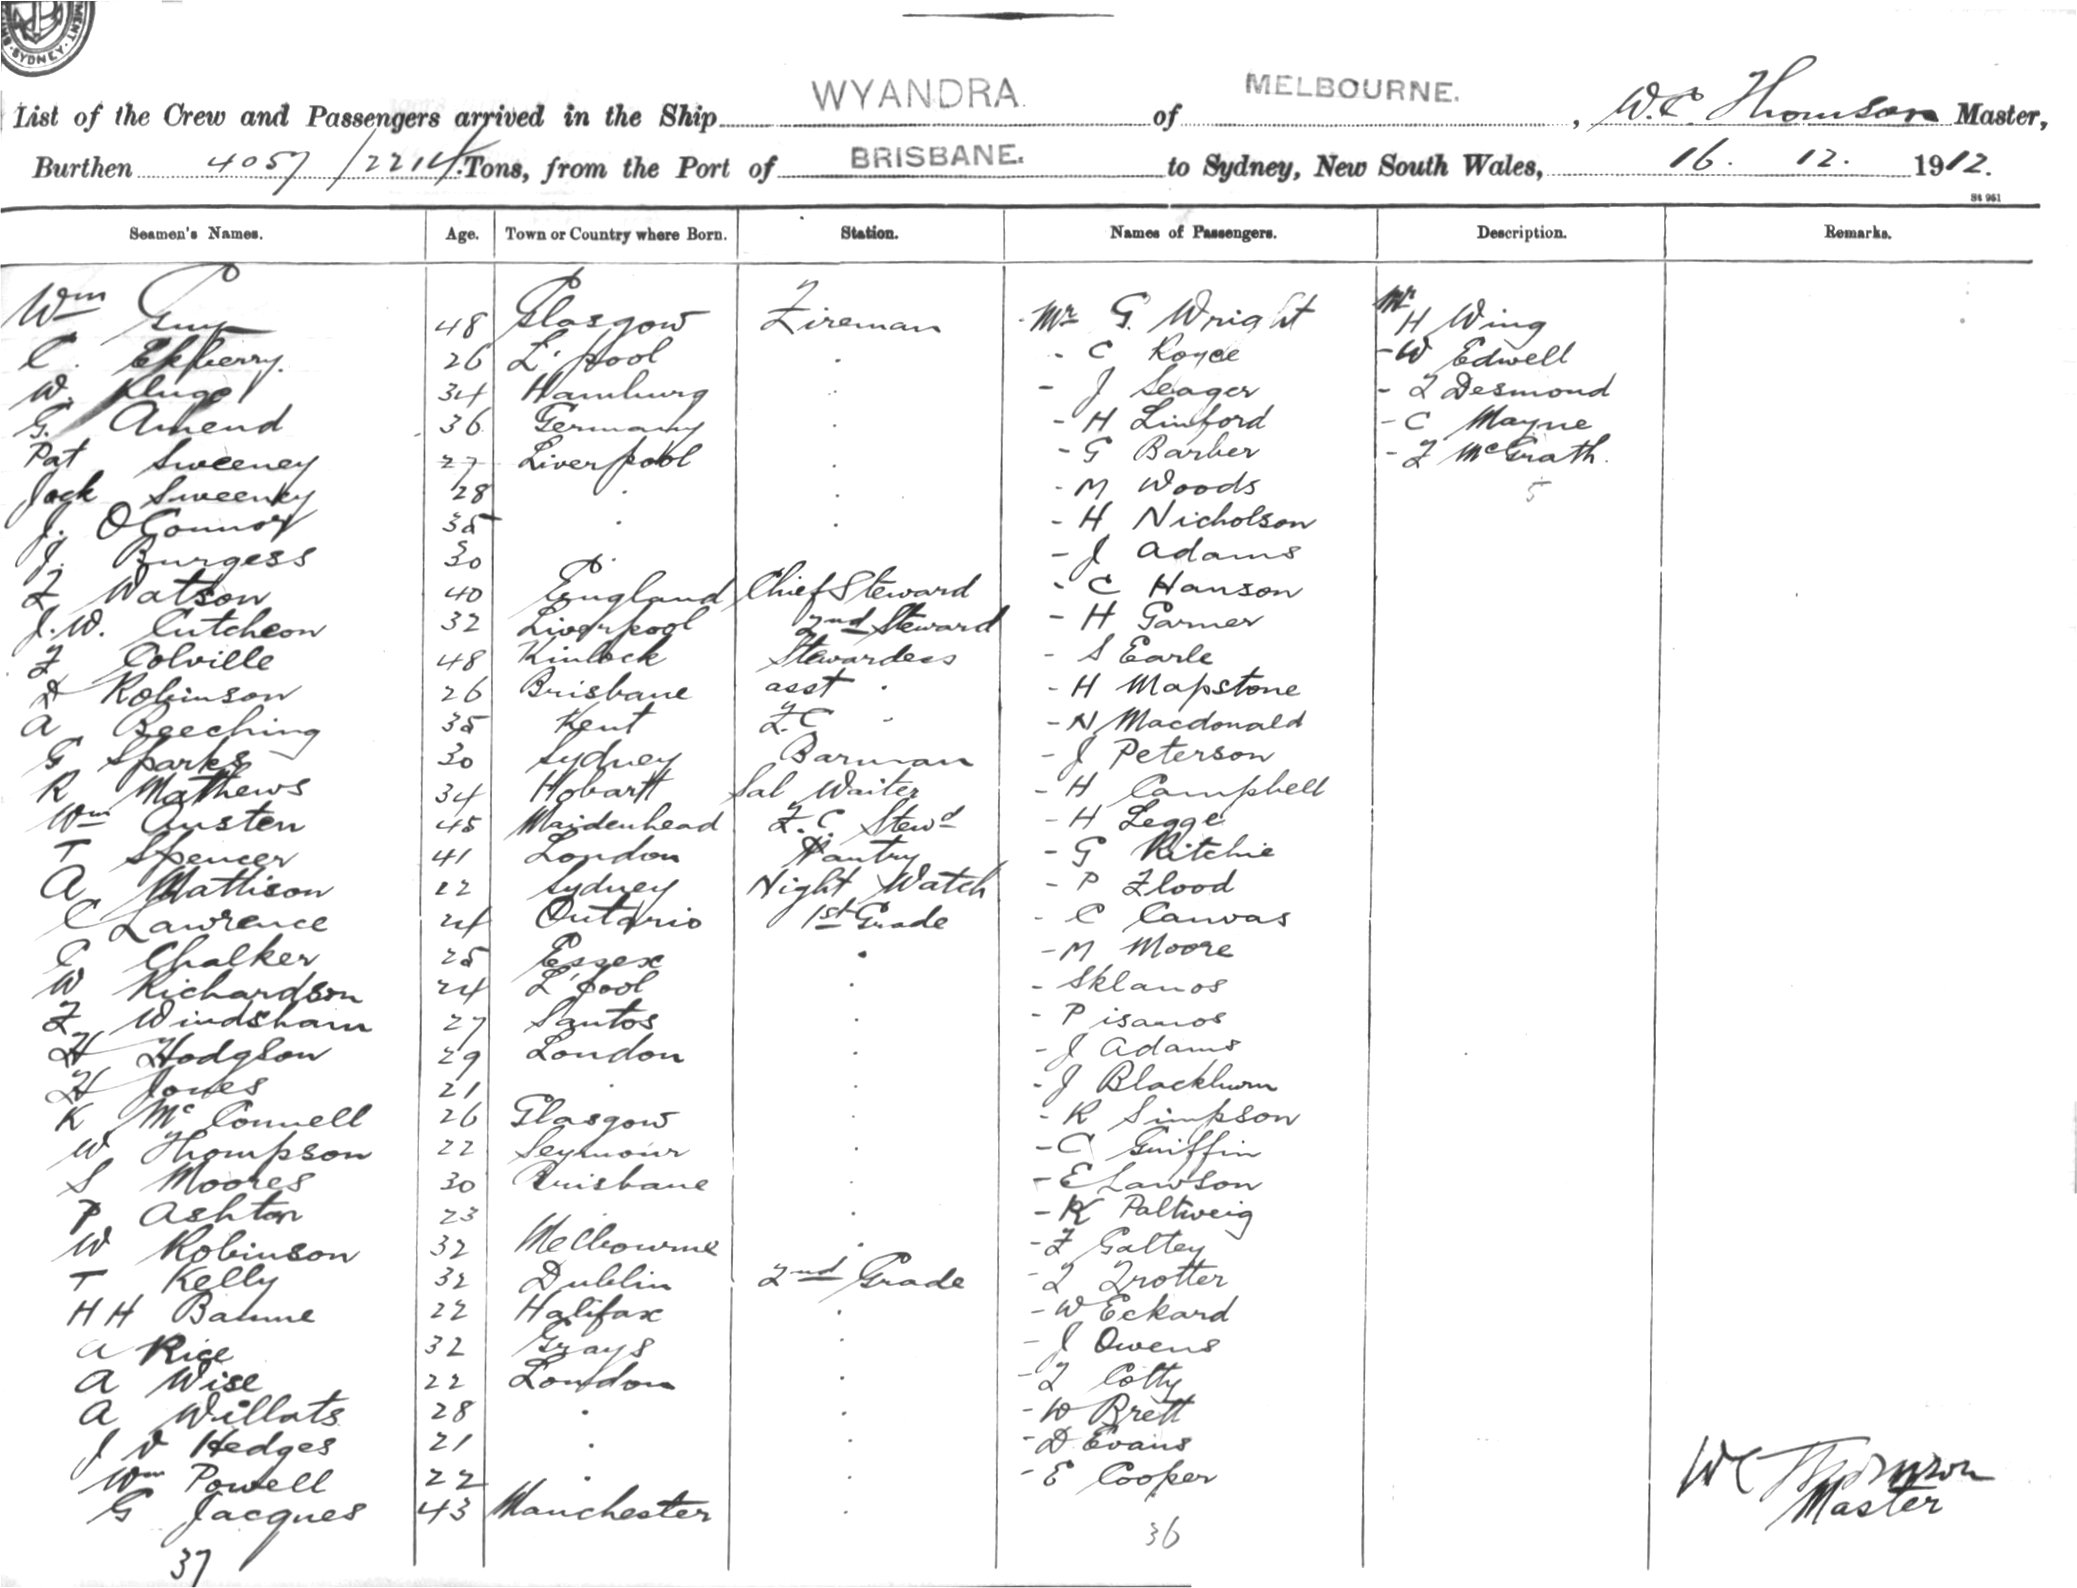 SYDNEY
WYANDRA. MELBOURNE.
List of the Crew and Passengers arrived in the Ship WYANDRA of MELBOURNE. , W.C. Thomson Master,
Burthen 4057/2214 Tons, from the Port of BRISBANE. to Sydney, New South Wales, 16. 12. 1912.
St 961
Seamen's Names. Age. Town or Country where Born. Station. Names of Passengers. Description. Remarks.
Wm Guy 48 Glasgow Fireman - Mr G. Wright Mr H Wing
C. Ekberry. 26 L'pool " - C Royce - W Edwell
W. Kluge 34 Hamburg " - J Seager - F Desmond
G. Amend 36 Germany " - H Linford - C Mayne
Pat Sweeney 27 Liverpool " - G Barber - F McGrath.
Jack Sweeney 28 " " - M Woods 5
J. O'Connor 35 " " - H Nicholson
J. Burgess 30 " - J Adams
F Watson 40 England Chief Steward - C Hanson
J.W. Cutcheon 32 Liverpool 2nd Steward - H Garner
F Colville 48 Kinlock Stewardess - S Earle
D Robinson 26 Brisbane asst " - H Mapstone
A Beeching 35 Kent F.C " - N Macdonald
G Sparks 30 Sydney Barman - J Peterson
R Mathews 34 Hobart Sal Waiter - H Campbell
Wm Austen 45 Maidenhead F.C. Stewd - H Legge
T Spencer 41 London Pantry - G Ritchie
A Mattison 22 Sydney Night Watch - P Flood
C Lawrence 24 Ontario 1st Grade - C Canvas
C Chalker 25 Essex " - M Moore
W Richardson 24 L'pool " - Sklanos
F Windsham 27 Santos " - Pisanos
H Hodgson 29 London " - J Adams
H Jones 21 " " - J Blackburn
K McConnell 26 Glasgow " - R Simpson
W Thompson 22 Seymour " - C Griffin
S Moores 30 Brisbane " - E Lawson
P Ashton 23 " " - K Paltweig
W Robinson 32 Melbourne " - F Galtey
T Kelly 32 Dublin 2nd Grade - F Trotter
H H Balme 22 Halifax " - W Eckard
A Rice 32 Grays " - J Owens
A Wise 22 London " - F Cotty
A Willats 28 " " - W Brett
J V Hedges 21 " " - D Evans
Wm Powell 22 " " - E Cooper
G Jacques 43 Manchester "
37 36
WC Thomson
Master